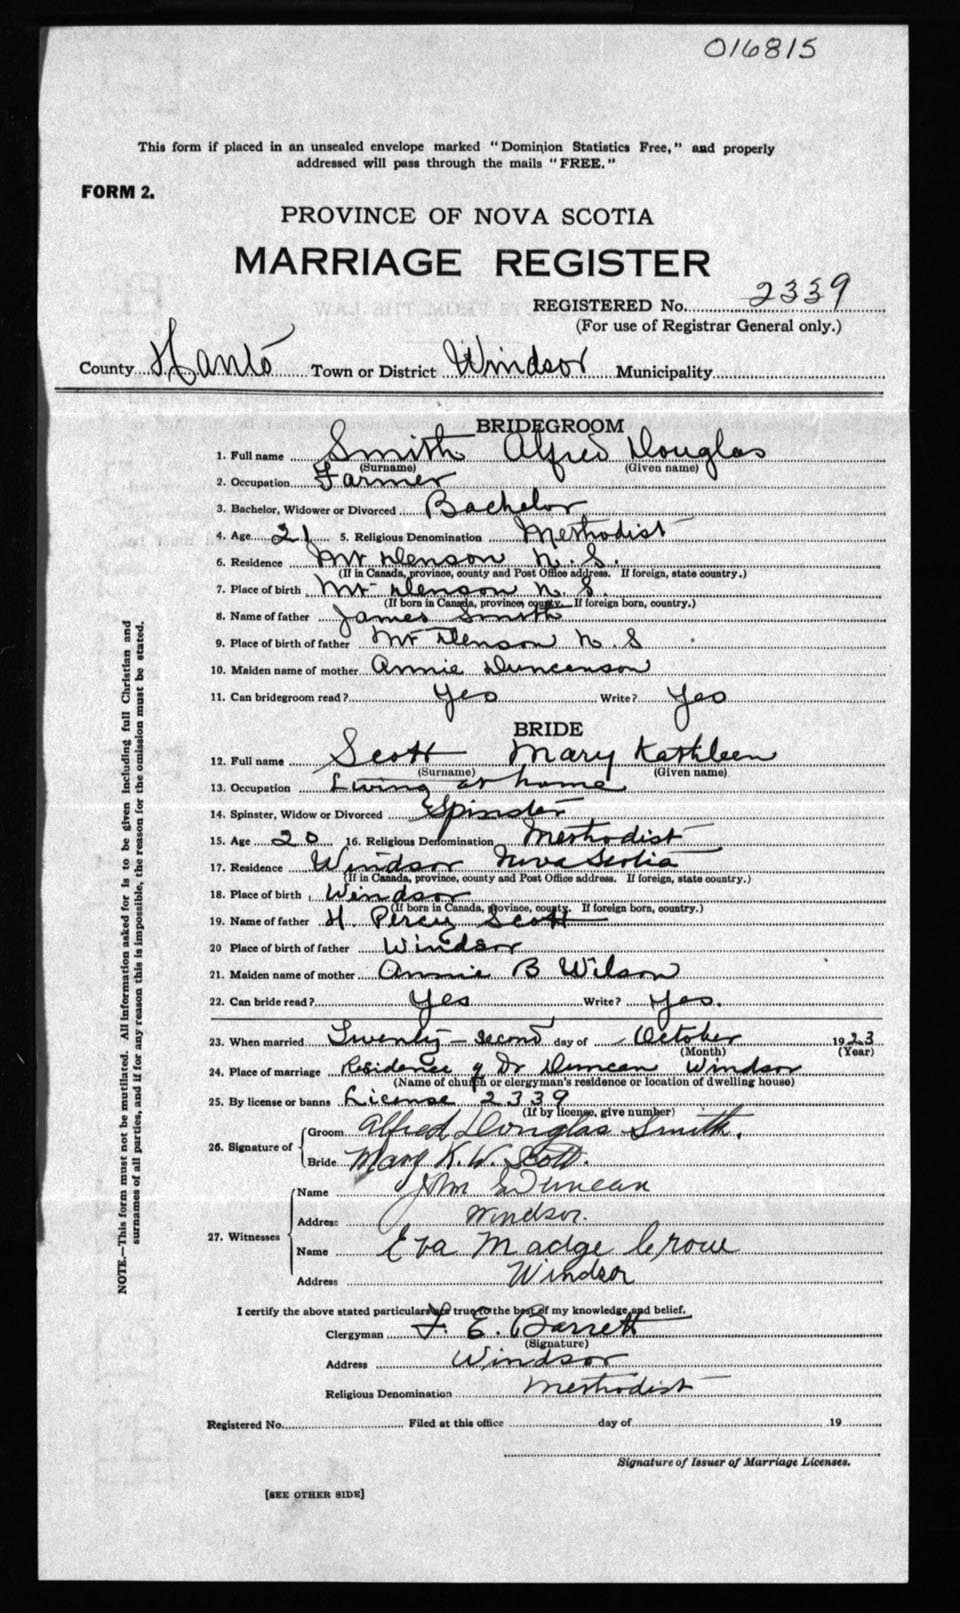 016815
This form if placed in an unsealed envelope marked "Dominion Statistics Free," and properly
addressed will pass through the mails "FREE."
FORM 2.
PROVINCE OF NOVA SCOTIA
MARRIAGE REGISTER
REGISTERED No. 2339
(For use of Registrar General only.)
County Hants Town or District Windsor Municipality
BRIDEGROOM
1. Full name Smith Alfred Douglas
(Surname) (Given name)
2. Occupation Farmer
3. Bachelor, Widower or Divorced Bachelor
4. Age 21 5. Religious Denomination Methodist
6. Residence Mt Denson N. S.
(If in Canada, province, county and Post Office address. If foreign, state country.)
7. Place of birth Mt Denson N. S.
(If born in Canada, province, county. If foreign born, country.)
8. Name of father James Smith
9. Place of birth of father Mt Denson N. S
10. Maiden name of mother Annie Duncanson
11. Can bridegroom read? Yes Write? Yes
BRIDE
12. Full name Scott Mary Kathleen
(Surname) (Given name)
13. Occupation Living at home
14. Spinster, Widow or Divorced Spinster
15. Age 20 16. Religious Denomination Methodist
17. Residence Windsor Nova Scotia
(If in Canada, province, county and Post Office address. If foreign, state country.)
18. Place of birth Windsor
(If born in Canada, province, county. If foreign born, country.)
19. Name of father H. Percy Scott
20 Place of birth of father Windsor
21. Maiden name of mother Annie B Wilson
22. Can bride read? Yes Write? Yes.
23. When married Twenty-second day of October 1923
(Month) (Year)
24. Place of marriage Residence of Dr Duncan Windsor
(Name of church or clergyman's residence or location of dwelling house)
25. By license or banns License 2339
(If by license, give number)
26. Signature of Groom Alfred Douglas Smith.
Bride Mary K. W. Scott.
27. Witnesses Name John Duncan
Address Windsor.
Name Eva Madge Crowe
Address Windsor
I certify the above stated particulars are true to the best of my knowledge and belief.
Clergyman F. E. Barrett
(Signature)
Address Windsor
Religious Denomination Methodist
Registered No. Filed at this office day of 19
Signature of Issuer of Marriage Licenses.
[SEE OTHER SIDE]
NOTE.—This form must not be mutilated. All information asked for is to be given including full Christian and
surnames of all parties, and if for any reason this is impossible, the reason for the omission must be stated.